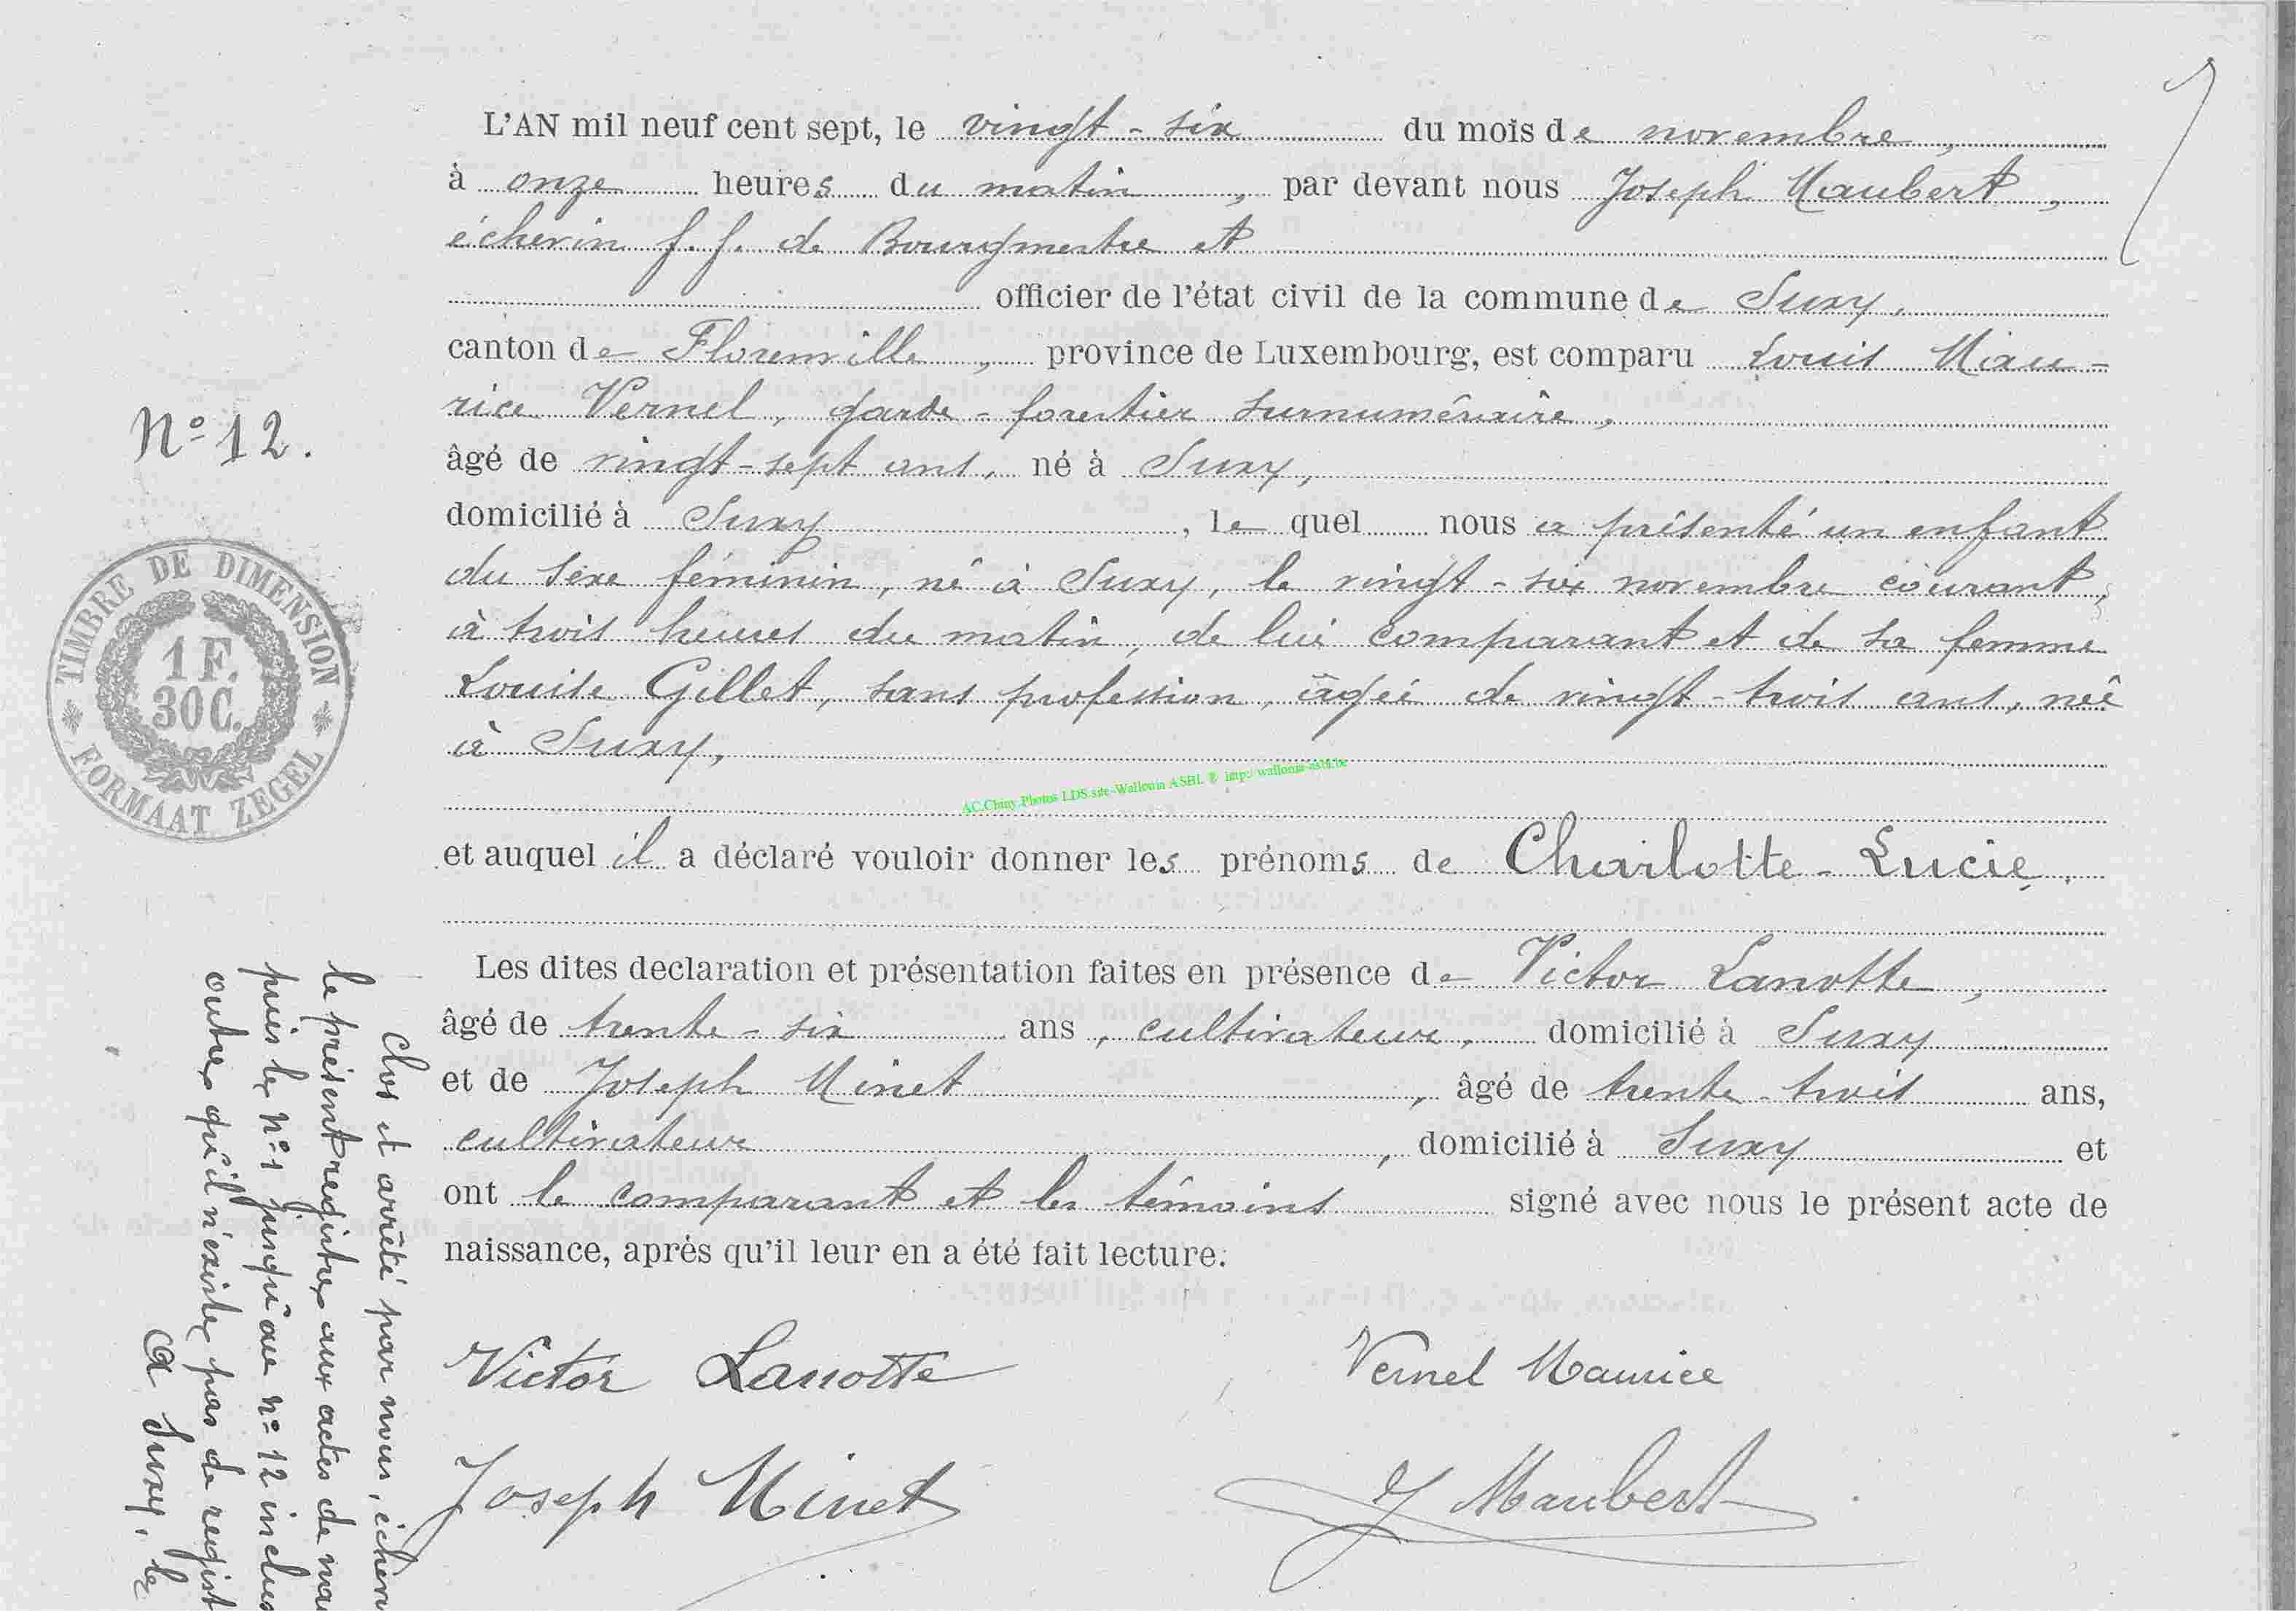 L'AN mil neuf cent sept, le vingt-six du mois de novembre,
à onze heures du matin, par devant nous Joseph Maubert,
écherin f.f. de Bourgmestre et
officier de l'état civil de la commune de Suxy,
canton de Florenville, province de Luxembourg, est comparu Louis Mau-
rice Vernel, garde-forestier surnuméraire,
âgé de vingt-sept ans, né à Suxy,
domicilié à Suxy, le quel nous a présenté un enfant
du sexe féminin, né à Suxy, le vingt-six novembre courant,
à trois heures du matin, de lui comparant et de sa femme
Louise Gillet, sans profession, âgée de vingt-trois ans, née
à Suxy,
AC.Chiny.Photos LDS site-Wallonia ASBL ® http:/wallonia-asbl.be
et auquel il a déclaré vouloir donner les prénoms de Charlotte-Lucie.
Les dites declaration et présentation faites en présence de Victor Lanotte,
âgé de trente-six ans, cultivateur, domicilié à Suxy
et de Joseph Minet, âgé de trente-trois ans,
cultivateur, domicilié à Suxy et
ont le comparant et les témoins signé avec nous le présent acte de
naissance, après qu'il leur en a été fait lecture.
Victor Lanotte
Vernel Maurice
Joseph Minet
J Maubert
N° 12.
TIMBRE DE DIMENSION
1 F.
30 C.
FORMAAT ZEGEL
Clos et arrêté par nous, échevin
le présent registre aux actes de nai
puis le n° 1 jusqu'au n° 12 inclus
outre qu'il n'existe pas de regist
A Suxy, le